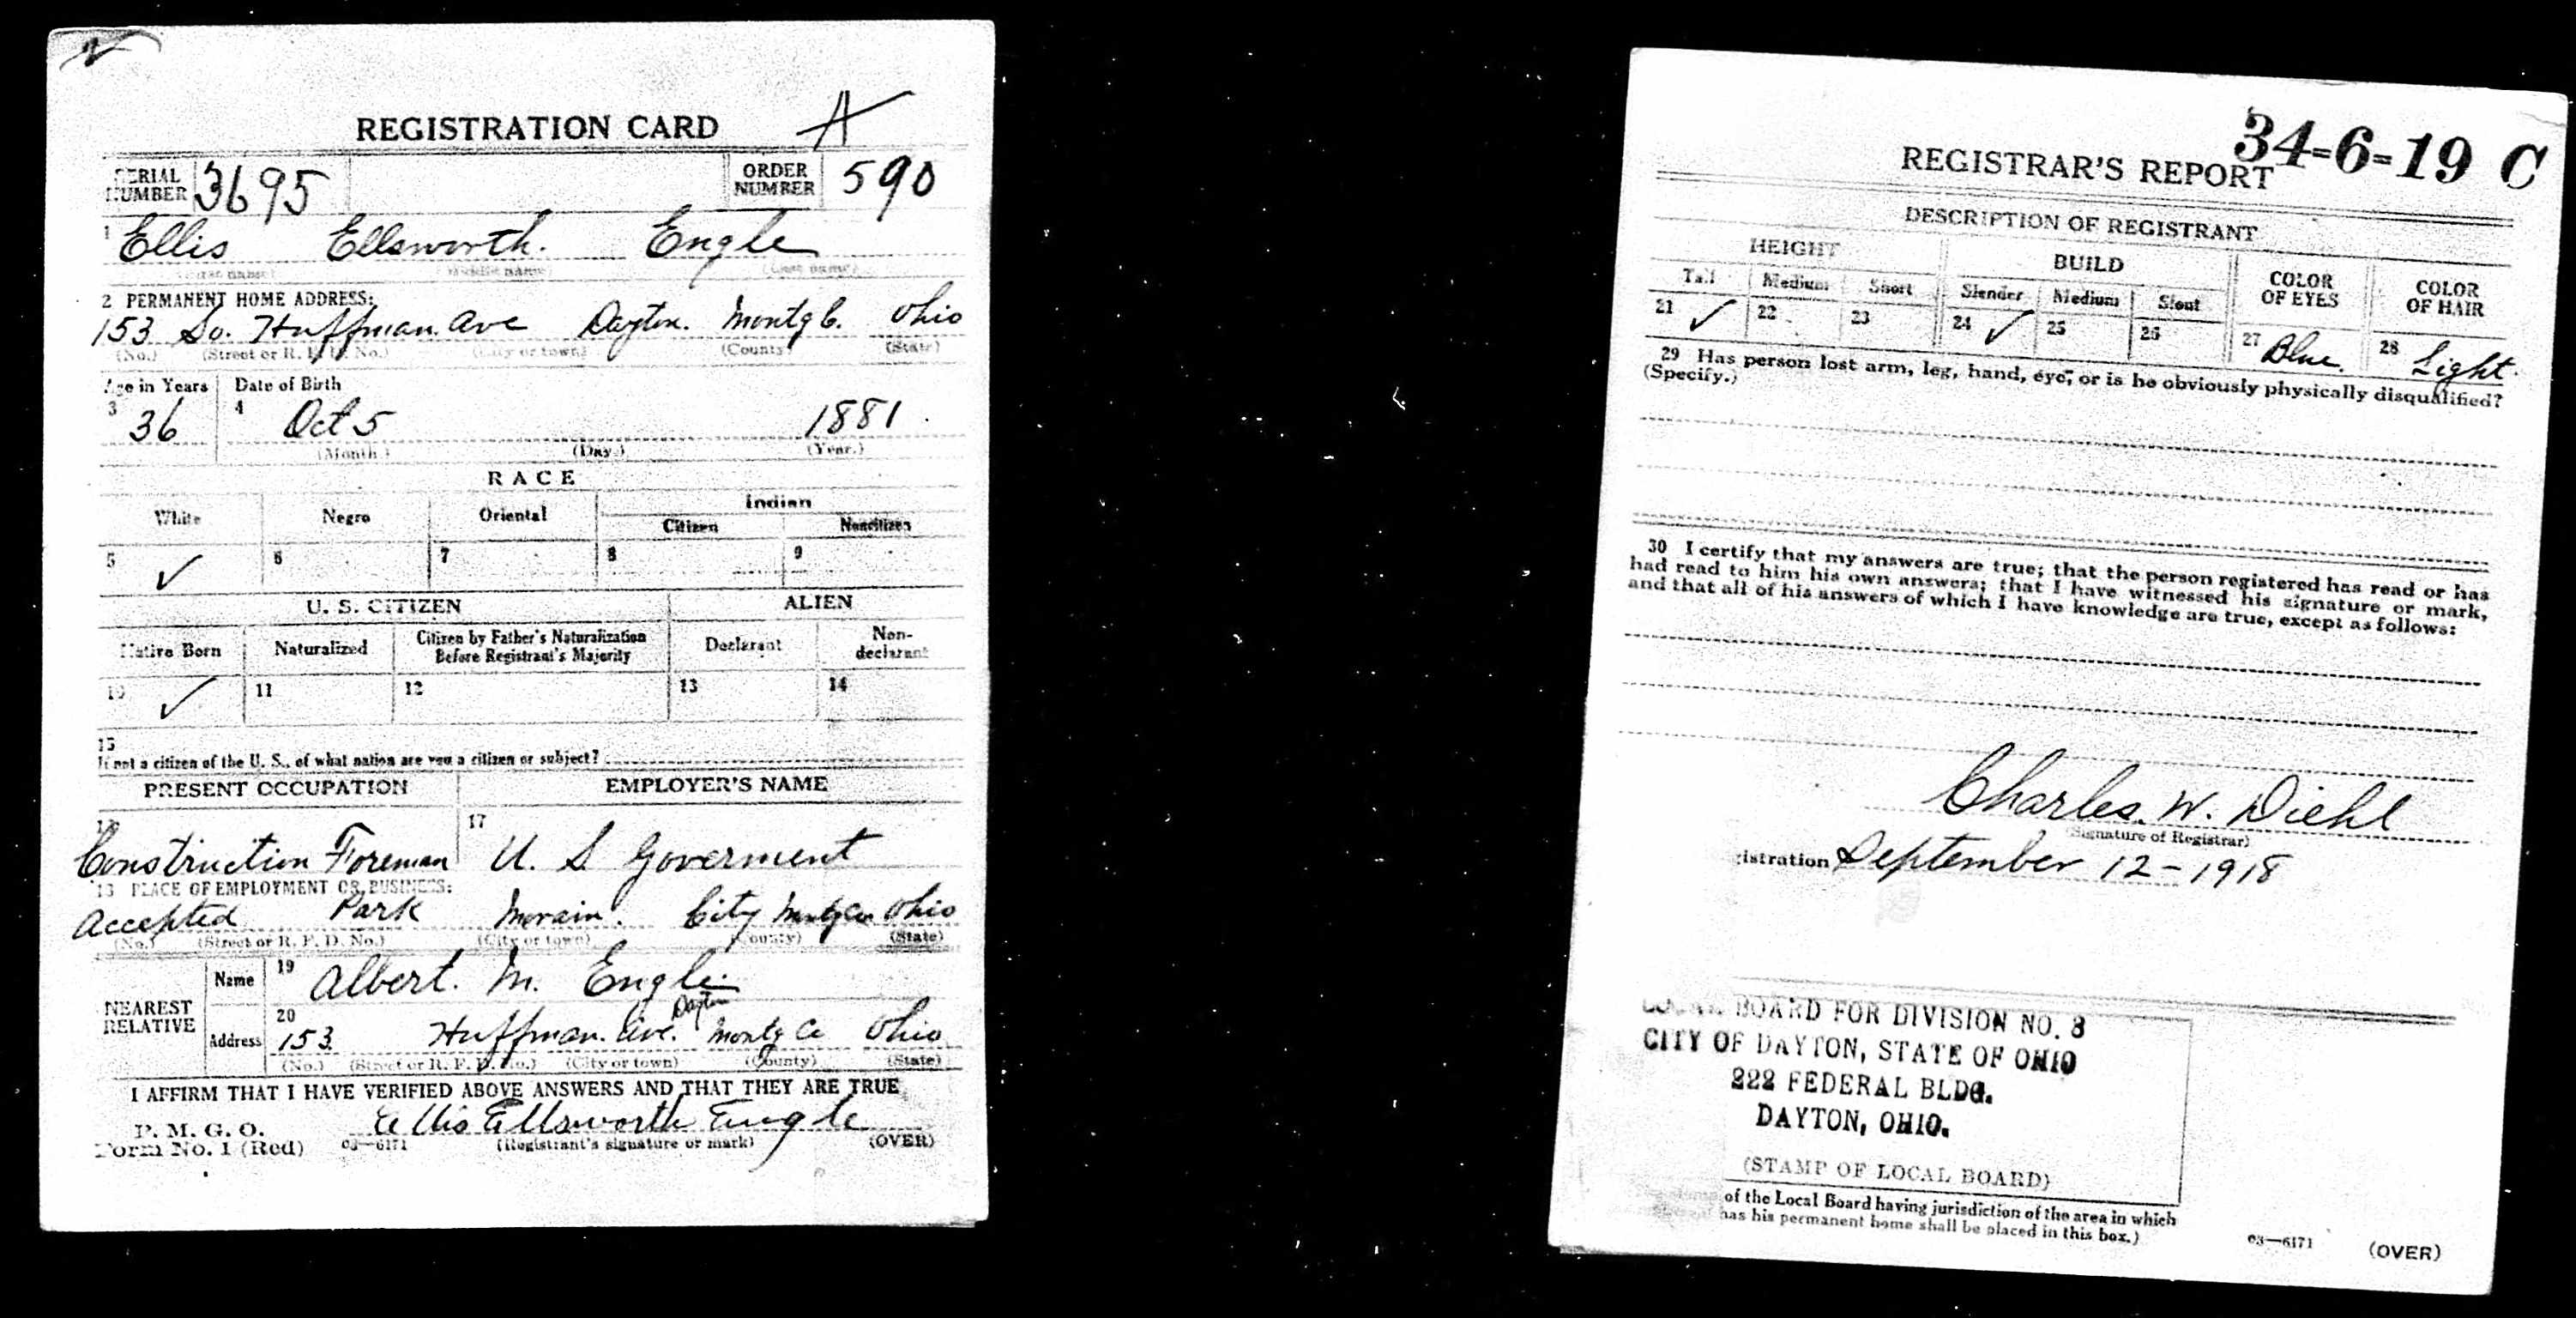 REGISTRATION CARD A
SERIAL NUMBER 3695 ORDER NUMBER 590
1 Ellis Ellsworth. Engle
(First name) (Middle name) (Last name)
2 PERMANENT HOME ADDRESS:
153 So. Huffman. Ave Dayton. Montg C. Ohio
(No.) (Street or R. F. D. No.) (City or town) (County) (State)
Age in Years Date of Birth
3 36 4 Oct 5 1881
(Month.) (Day.) (Year.)
RACE
White Negro Oriental Indian
Citizen Noncitizen
5 ✓ 6 7 8 9
U. S. CITIZEN ALIEN
Native Born Naturalized Citizen by Father's Naturalization Before Registrant's Majority Declarant Non-declarant
10 ✓ 11 12 13 14
15
If not a citizen of the U. S., of what nation are you a citizen or subject?
PRESENT OCCUPATION EMPLOYER'S NAME
16 Construction Foreman 17 U. S Goverment
18 PLACE OF EMPLOYMENT OR BUSINESS:
Accepted Park Morain. City Montg Co Ohio
(No.) (Street or R. F. D. No.) (City or town) (County) (State)
NEAREST RELATIVE
Name 19 Albert. M. Engle
Dayton
Address 20 153 Huffman. Ave. Montg Co Ohio
(No.) (Street or R. F. D. No.) (City or town) (County) (State)
I AFFIRM THAT I HAVE VERIFIED ABOVE ANSWERS AND THAT THEY ARE TRUE
Ellis Ellsworth Engle
P. M. G. O.
Form No. 1 (Red) 03—6171 (Registrant's signature or mark) (OVER)
34-6-19 C
REGISTRAR'S REPORT
DESCRIPTION OF REGISTRANT
HEIGHT BUILD COLOR OF EYES COLOR OF HAIR
Tall Medium Short Slender Medium Stout
21 ✓ 22 23 24 ✓ 25 26 27 Blue. 28 Light.
29 Has person lost arm, leg, hand, eye, or is he obviously physically disqualified?
(Specify.)
30 I certify that my answers are true; that the person registered has read or has
had read to him his own answers; that I have witnessed his signature or mark,
and that all of his answers of which I have knowledge are true, except as follows:
Charles. W. Diehl
(Signature of Registrar)
gistration September 12-1918
LOCAL BOARD FOR DIVISION NO. 3
CITY OF DAYTON, STATE OF OHIO
222 FEDERAL BLDG.
DAYTON, OHIO.
(STAMP OF LOCAL BOARD)
of the Local Board having jurisdiction of the area in which
has his permanent home shall be placed in this box.)
03—6171 (OVER)